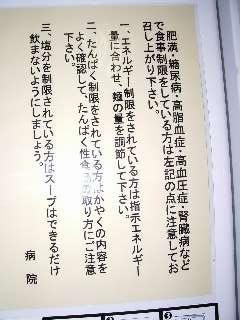 肥満・糖尿病・高脂血症・高血圧症・腎臓病など
で食事制限をしている方は左記の点に注意してお
召し上がり下さい。
一、エネルギー制限をされている方は指示エネルギー
量に合わせ、麺の量を調節して下さい。
二、たんぱく制限をされている方はかやくの内容を
よく確認して、たんぱく性食品の取り方にご注意
下さい。
三、塩分を制限されている方はスープはできるだけ
飲まないようにしましょう。
病院